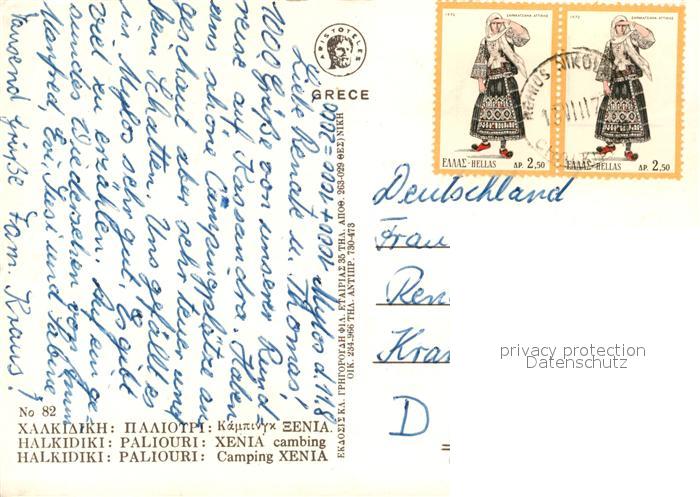 Mylos d. 11.8
Liebe Renate u. Thomas!
1000 Grüße von unserer Rund-
reise auf Kassandra. Haben
uns schöne Campingplätze an
geschaut aber sehr teuer und
kein Schatten. Uns gefällt es
in Mylos sehr gut. Es gibt
viel zu erzählen. Auf ein ge-
sundes Wiedersehen von
Manfred, Evi, Susi und Sabine
Tausend Grüße Fam. Kraus!
ARISTOTELES
GRECE
1972 ΣΑΡΑΚΑΤΣΑΝΑ ΑΤΤΙΚΗΣ
ΕΛΛΑΣ-HELLAS ΔΡ. 2,50
1972 ΣΑΡΑΚΑΤΣΑΝΑ ΑΤΤΙΚΗΣ
ΕΛΛΑΣ-HELLAS ΔΡ. 2,50
ΕΚΔΟΣΙΣ ΚΛ. ΓΡΗΓΟΡΟΥΔΗ ΦΙΛ. ΕΤΑΙΡΙΑΣ 35 ΤΗΛ. ΑΠΟΘ. 263-029 ΘΕΣ)ΝΙΚΗ
ΟΙΚ. 234-966 ΤΗΛ. ΑΝΤΙΠΡ. 730-473
Deutschland
Frau
Ren
Kra
D
privacy protection
Datenschutz
No 82
ΧΑΛΚΙΔΙΚΗ: ΠΑΛΙΟΥΡΙ: Κάμπινγκ ΞΕΝΙΑ.
HALKIDIKI: PALIOURI: XENIA cambing
HALKIDIKI: PALIOURI: Camping XENIA